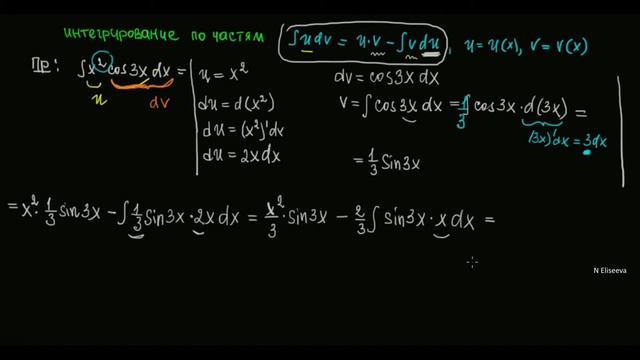 интегрирование по частям ∫u dv = u·v − ∫v du, u = u(x), v = v(x)
Пр: ∫x² cos3x dx =
u dv
u = x²
du = d(x²)
du = (x²)'dx
du = 2xdx
dv = cos3x dx
v = ∫ cos3x dx = 1/3 ∫ cos3x · d(3x) =
(3x)'dx = 3dx
= 1/3 Sin3x
= x² · 1/3 sin3x − ∫ 1/3 sin3x · 2x dx = x²/3 · sin3x − 2/3 ∫ sin3x · x dx =
N Eliseeva